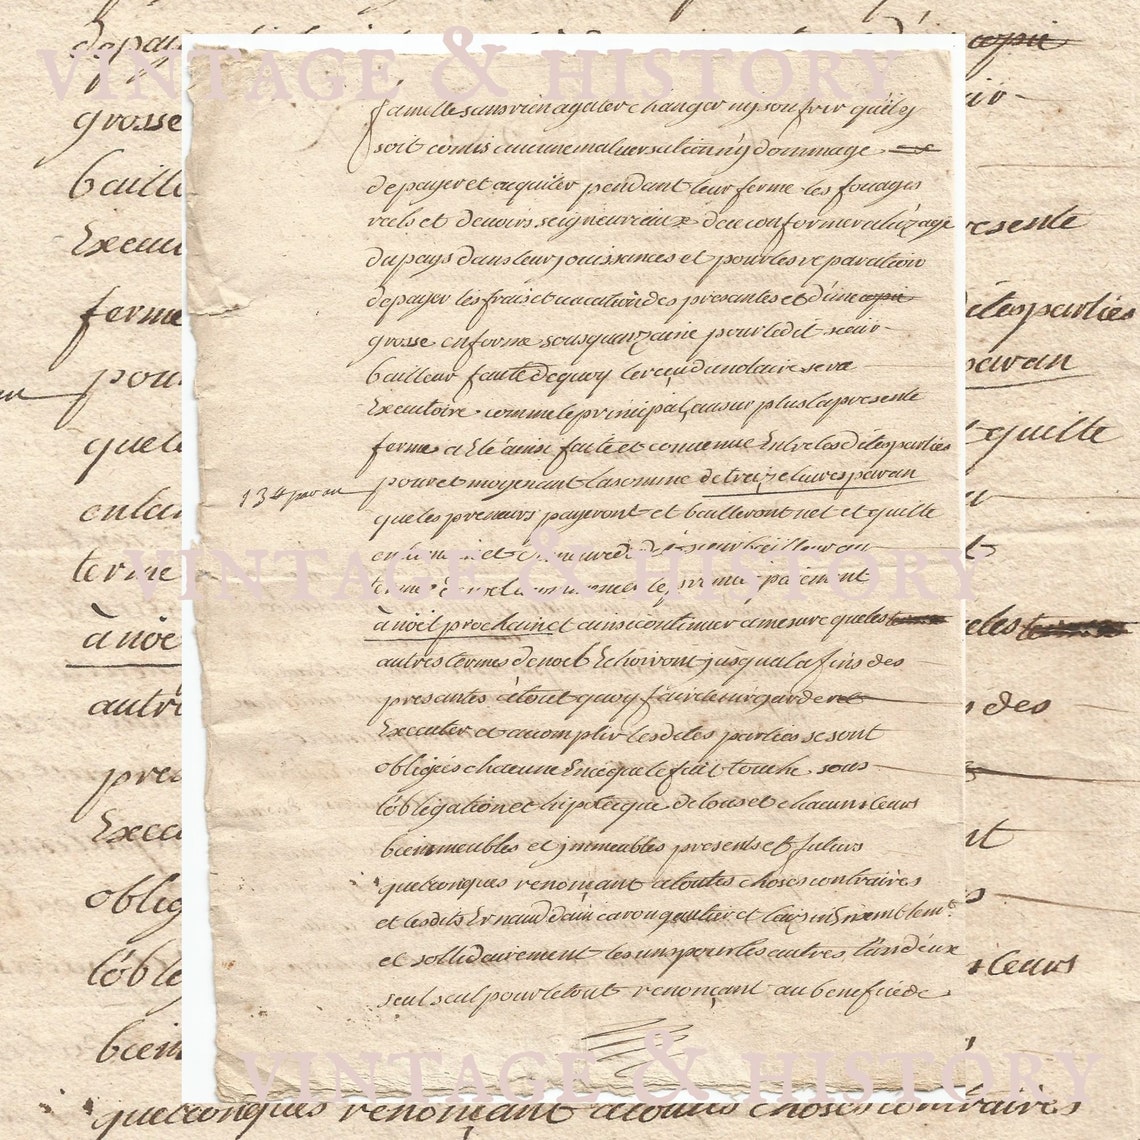 VINTAGE & HISTORY
famille sans rien agater changer ny soufrir quil y
soit comis aucune malversation ny dommage
de payer et aquiter pendant leur ferme les fouages
reels et devoirs seigneuriaux de se conformer a lúzage
du pays dans leur jouissances et pour les reparation
de payer les frais et vacation des presantes et d'une copie
grosse en forme sous quinzaine pour ledit sieur
bailleur faute de quoy le raud notaire sera
Executoire comme le principal, au sur plus la presente
ferme a Eté ainsi faite et convenue Entre les dites parties
pour et moyenant la somme de treize livres par an
13# par an
que les preneurs payeront et bailleront net et quitte
en la main et demeure dudit sieur bailleur au
terme de noel le premier paiement
VINTAGE & HISTORY
à noël prochain et ainsi continuer a mesure que les
autres termes de noel Echoiront jusqua la fin des
presantes à tout quoy faire tenir garder et
Executer et accomplir lesdites parties se sont
obligés chacune En ce que le fait touche sous
l'obligation et hipoteque de tous et chacuns leurs
biens meubles et immeubles presents et futurs
quelconques renonçant a toutes choses contraires
et lesdits Ernaud gautier et Ensemblemt.
et sollidairement les uns pour les autres l'un d'eux
seul seul pour le tout renonçant au benefice de
VINTAGE & HISTORY